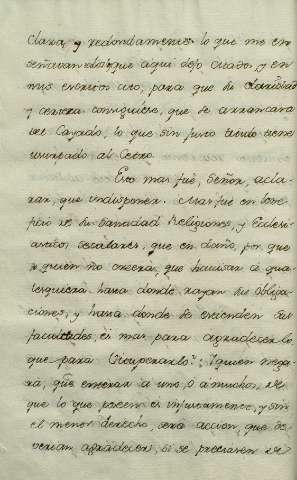 clara, y redondamente lo que me en
señavan los que aqui dejo citados, y en
mis escritos cito, para que de
y certeza consiguiese, que se arrancara
del Cayado, lo que sin justo titulo tiene
usurpado al Cetro.
Esto mas fué, Señor, acla
rar, que indisponer. Mas fue en bene
ficio de la Religiones, y Ecclesi
asticos, seculares, que en daño, por que
quien no creera, que havisar á qua
lesquiera hasta donde rayan sus obliga
ciones, y hasta donde se extienden sus
facultades, es mas para agradecerlo
que para ? Y quien nega
rá, que enterar á uno, ó á muchos, de
que lo que poseen es injustamente, y sin
el menor derecho, será accion, que de
verian agradecer, si se preciaren de